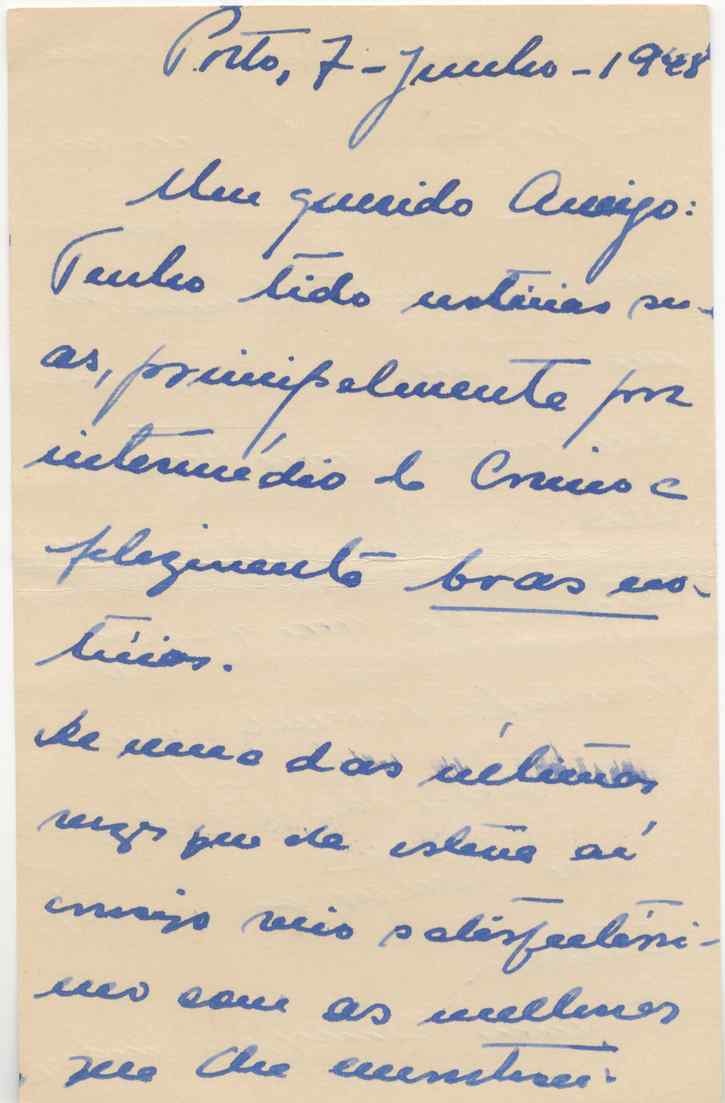 Porto, 7-Junho-1948
Meu querido Amigo:
Tenho tido notícias su-
as, principalmente por
intermédio do Cruino e
felizmente boas no-
tícias.
De uma das últimas
vezes que ele esteve aí
consigo veio satisfeitíssi-
mo com as melhoras
que lhe encontrou.